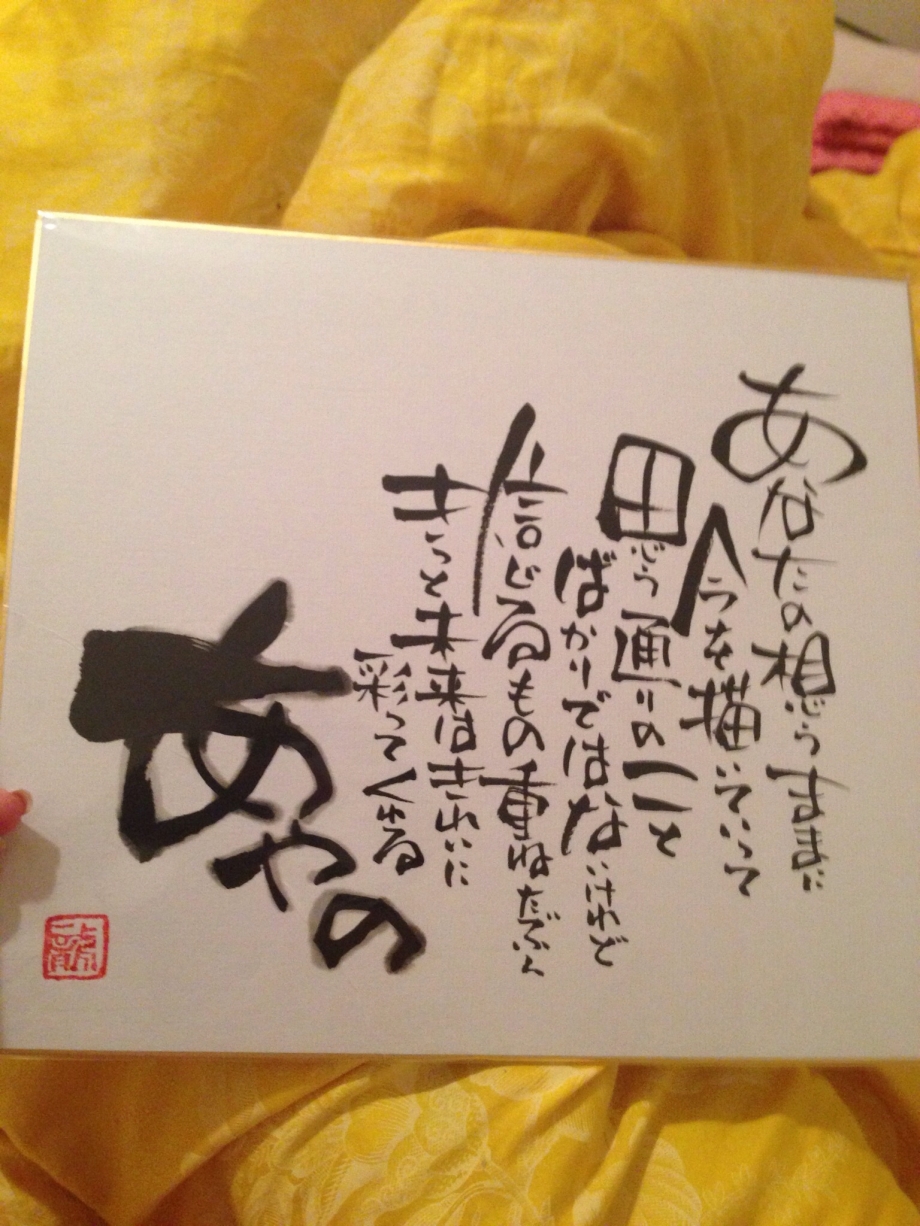 あなたの想うままに
今を描いていって
思う通りのこと
ばかりではないけれど
信じるもの重ねたぶん
きっと未来はきれいに
彩ってくれる
あやの